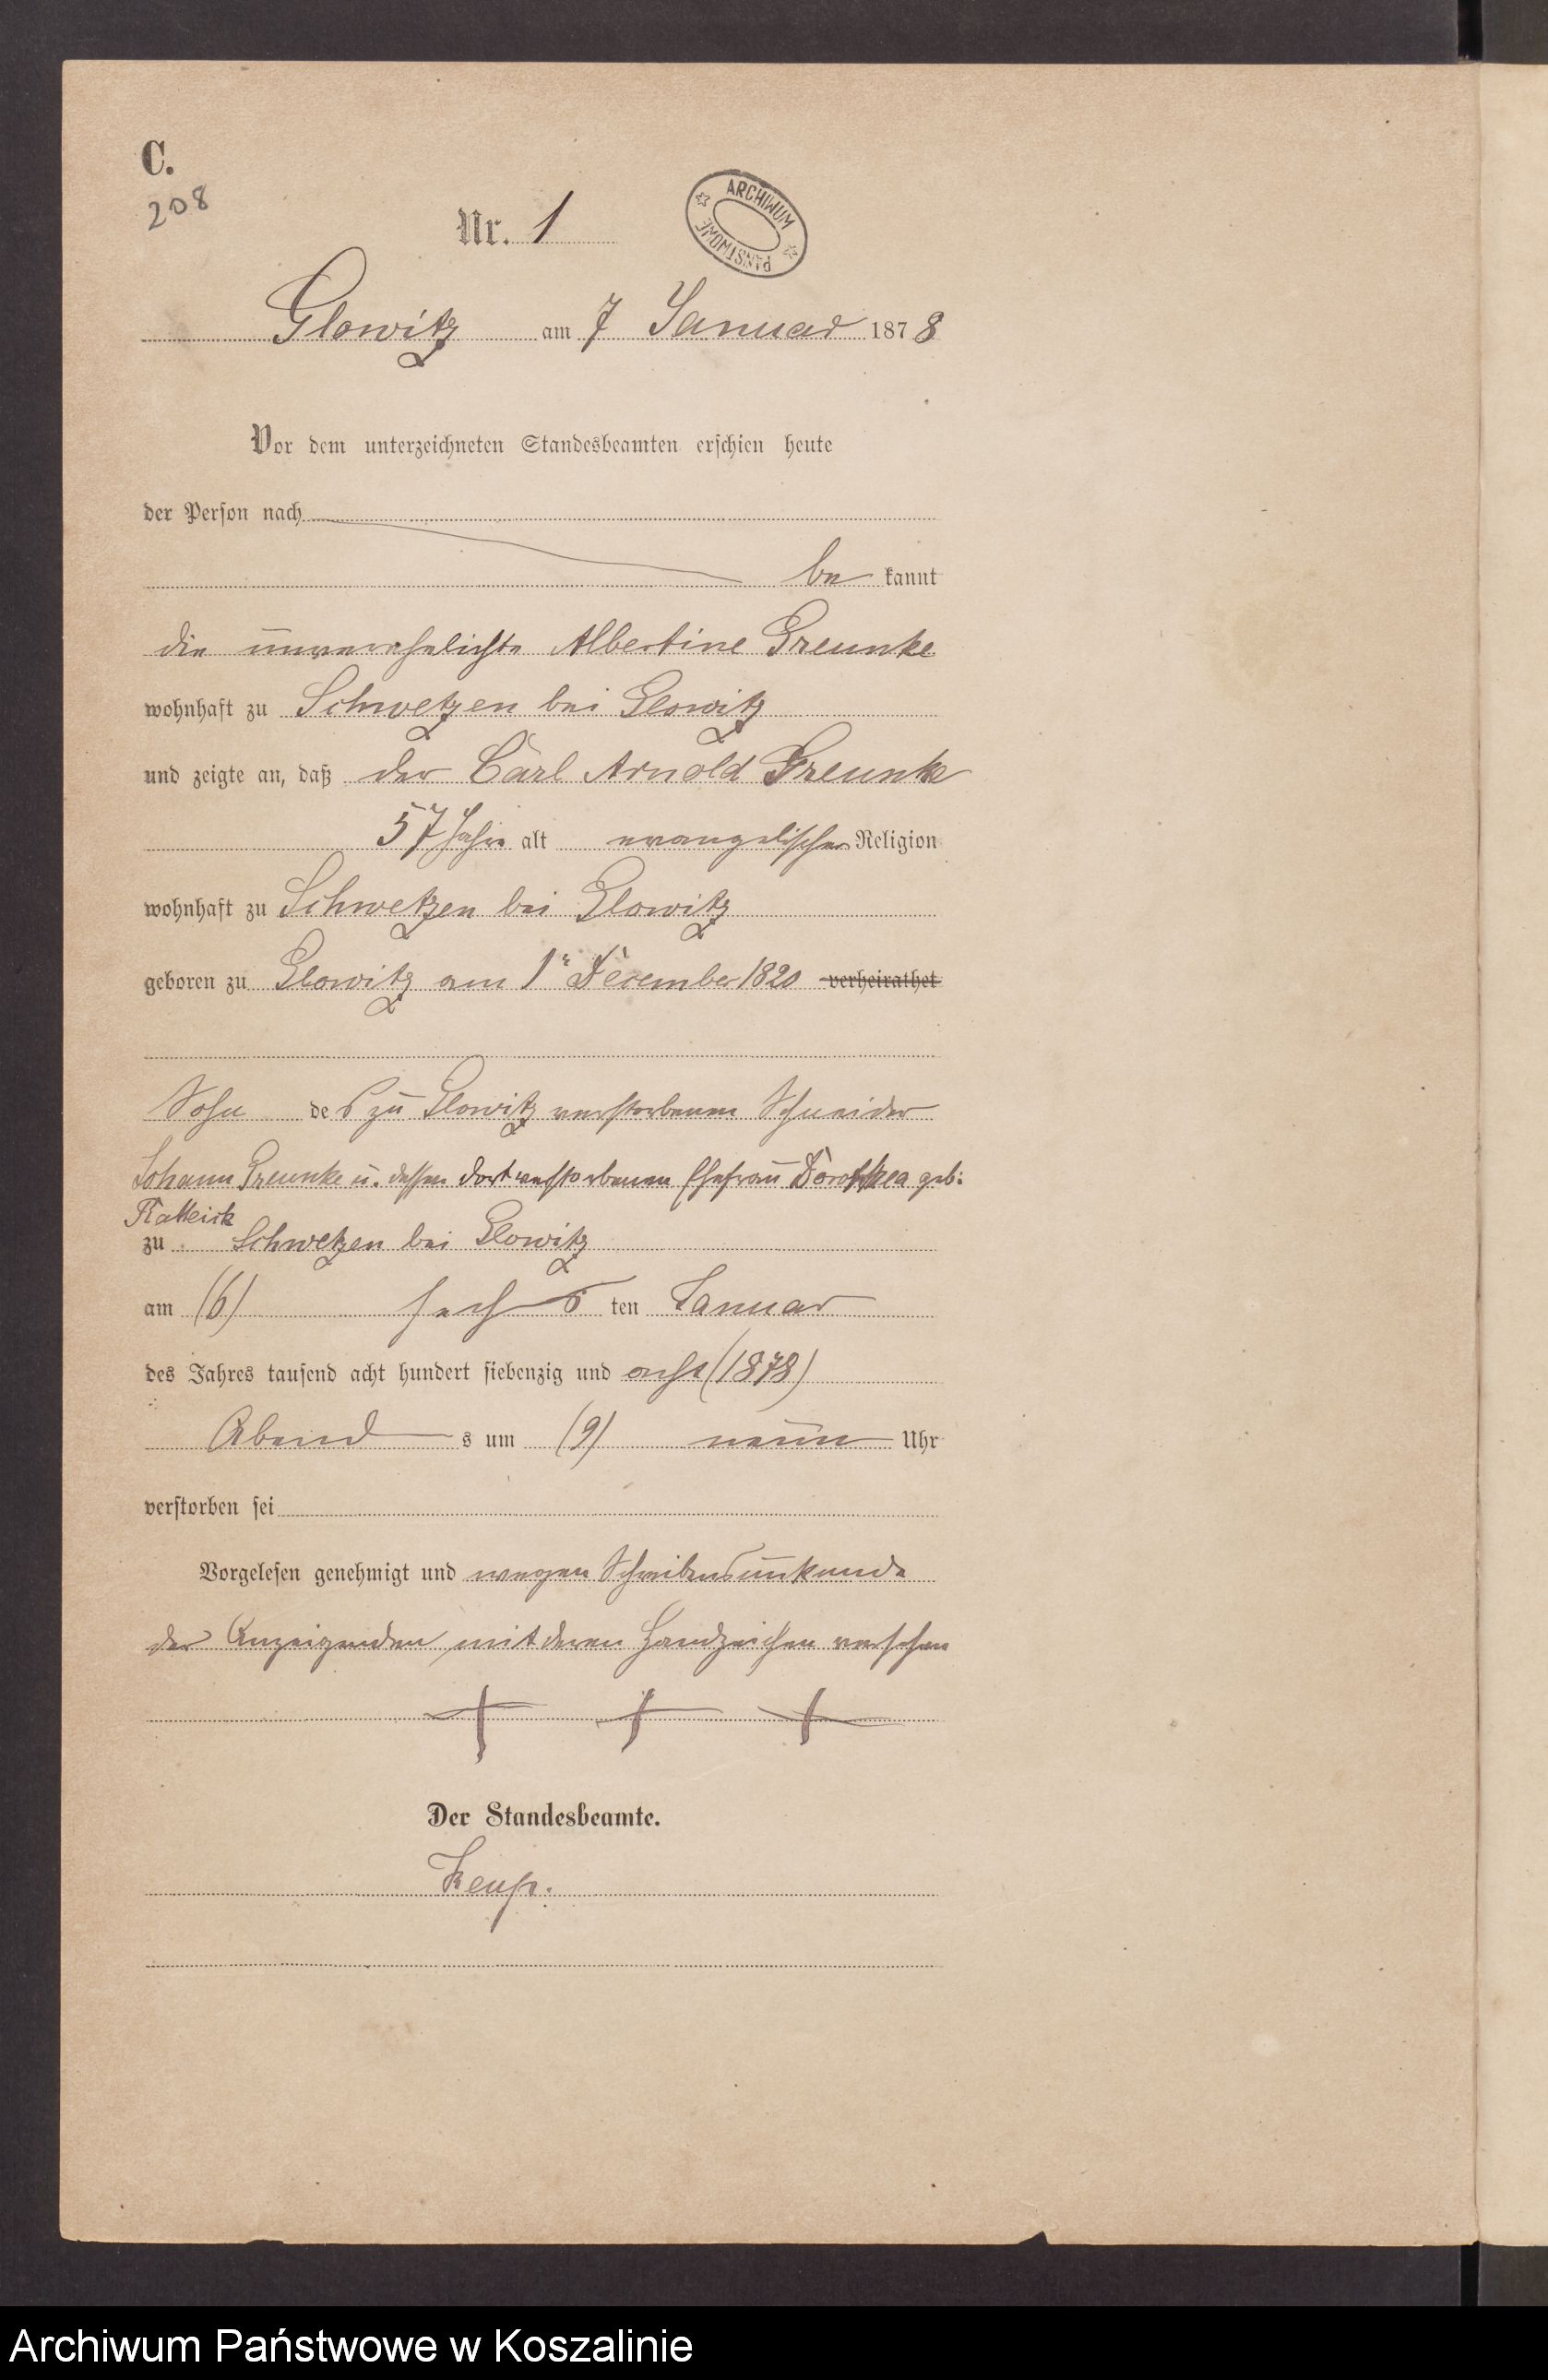 C.
208
Nr. 1
ARCHIWUM PAŃSTWOWE
Glowitz am 7 Januar 1878
Vor dem unterzeichneten Standesbeamten erschien heute
der Person nach
be kannt
die unverehelichte Albertine Greunke
wohnhaft zu Schwetzen bei Glowitz
und zeigte an, daß der Carl Arnold Greunke
57 Jahre alt evangelischer Religion
wohnhaft zu Schwetzen bei Glowitz
geboren zu Glowitz am 1t December 1820 verheirathet
Sohn des zu Glowitz verstorbenen Schneider
Johann Greunke u. dessen dort verstorbenen Ehefrau Dorothea geb:
zu Schwetzen bei Glowitz
am (6) sechs ten Januar
des Jahres tausend acht hundert siebenzig und acht (1878)
Abend s um (9) neun Uhr
verstorben sei
Vorgelesen genehmigt und wegen Schreibensunkunde
der Anzeigenden mit deren Handzeichen versehen
+ + +
Der Standesbeamte.
Archiwum Państwowe w Koszalinie